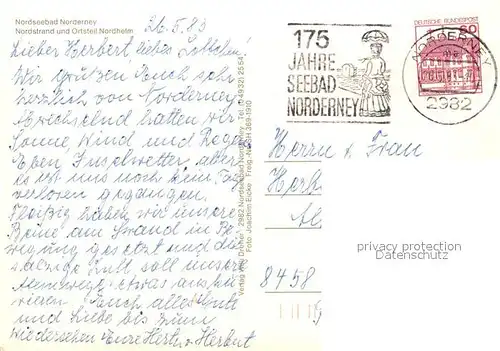 Nordseebad Norderney
Nordstrand und Ortsteil Nordhelm
26.5.83
Lieber Herbert, liebes Lottchen!
Wir grüßen Euch sehr
herzlich von Norderney.
Abwechselnd hatten wir
Sonne, Wind und Regen
Eben Inselwetter, aber
es ist uns noch kein Tag
verloren gegangen.
Fleißig haben wir unsere
Beine am Strand in Be-
wegung gesetzt und die
salzige Luft soll unsere
Atemwege etwas
Euch alles Gute
und Liebe bis zum
Wiedersehen Eure Herta u. Herbert
Verlag 2982 Nordseebad Norderney Tel. (0 49 32) 25 54
Foto: Joachim Eicke Freig.-Nr.
175
JAHRE
SEEBAD
NORDERNEY
DEUTSCHE BUNDESPOST
80
NORDERNEY
2982
Herrn u. Frau
Herb
Al
8458
privacy protection
Datenschutz